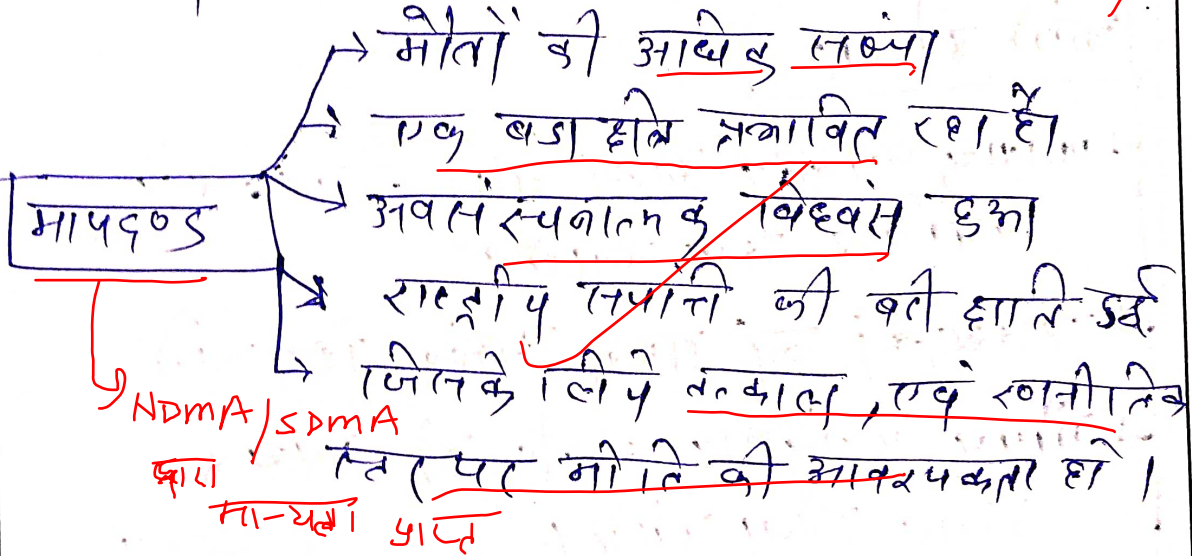 मौतों की अधिक संख्या
एक बड़ा क्षेत्र प्रभावित रहा है।
मापदण्ड
अवसंरचनात्मक विध्वंस हुआ
राष्ट्रीय संपत्ति की बड़ी क्षति हुई
जिसके लिये तत्काल, एवं रणनीतिक
स्तर पर नीति की आवश्यकता हो।
NDMA/SDMA
द्वारा
मान्यता
प्राप्त